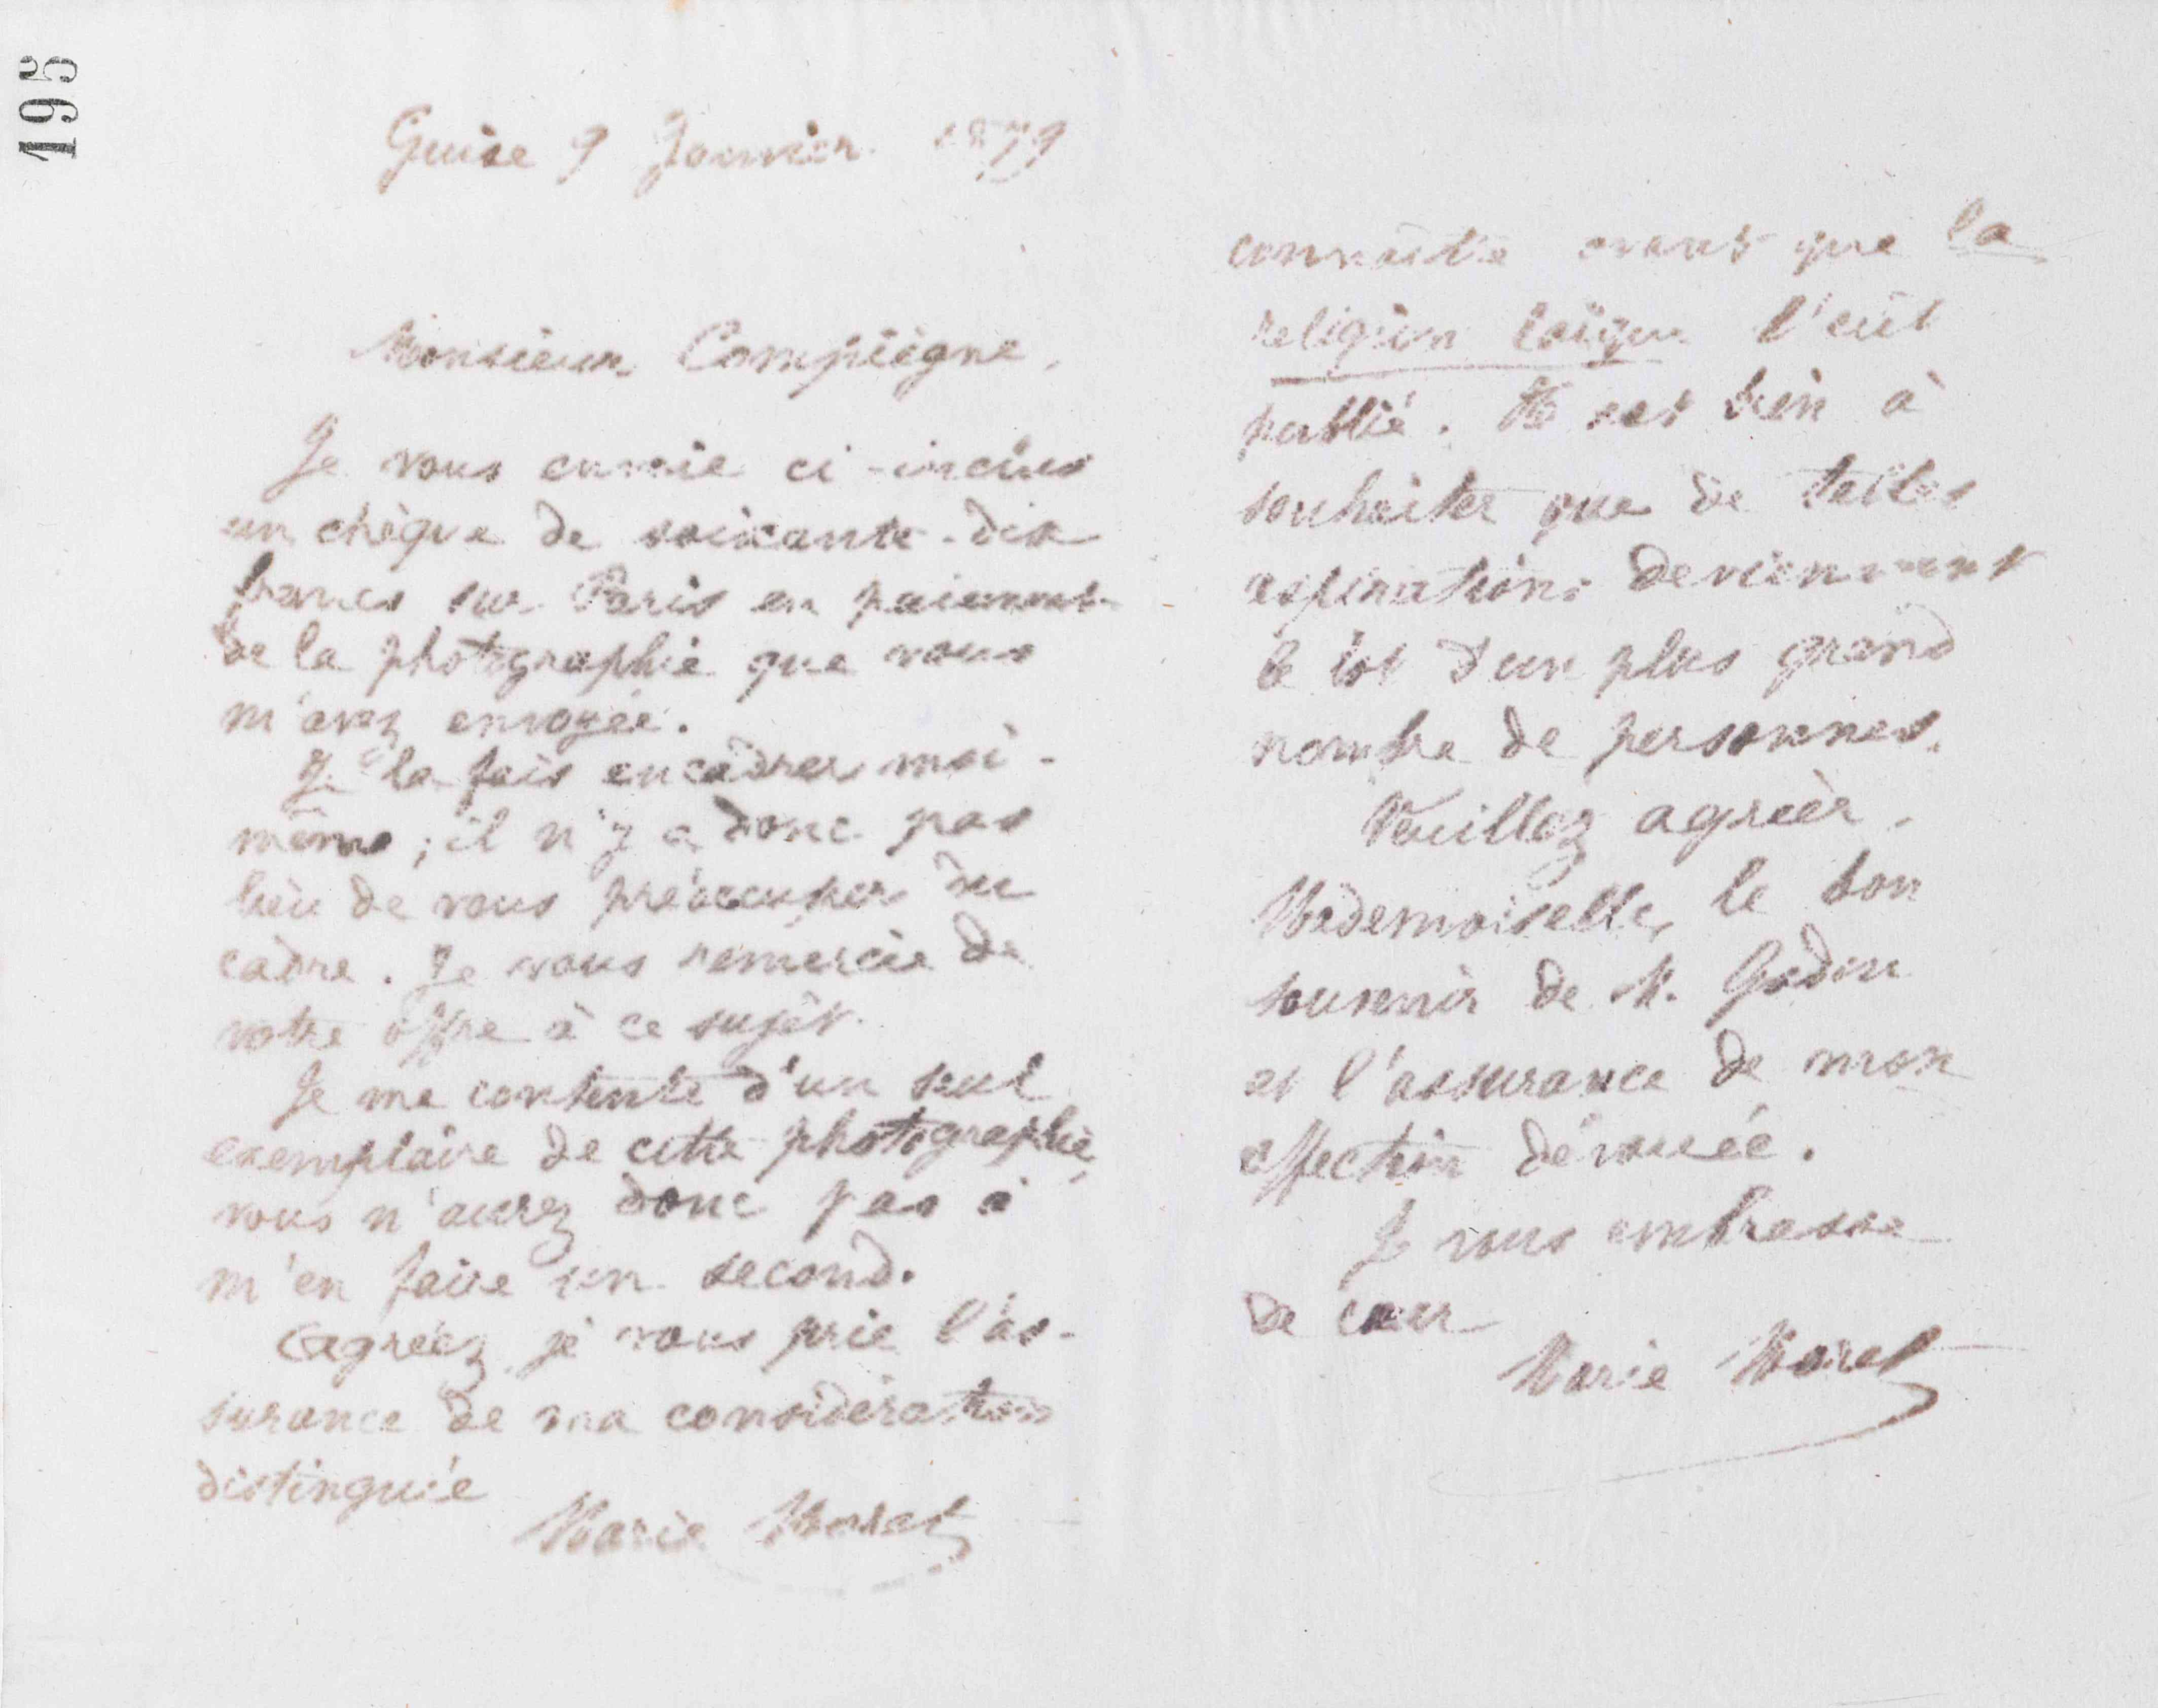 195
Guise 9 Janvier 1879
Monsieur Compiègne,
Je vous envoie ci-inclus
un chèque de soixante-dix
francs sur Paris en paiement
de la photographie que vous
m'avez envoyée.
Je la fais encadrer moi-
même ; il n'y a donc pas
lieu de vous préoccuper du
cadre. Je vous remercie de
votre offre à ce sujet.
Je me contente d'un seul
exemplaire de cette photographie,
vous n'aurez donc pas à
m'en faire un second.
Agréez je vous prie l'as-
surance de ma considération
distinguée
Marie Moret
connaître avant que la
religion laïque l'eût
publié. Il est bien à
souhaiter que de telles
aspirations deviennent
le lot d'un plus grand
nombre de personnes.
Veuillez agréer,
Mademoiselle, le bon
souvenir de M. Godin
et l'assurance de mon
affection dévouée.
Je vous embrasse
de cœur
Marie Moret